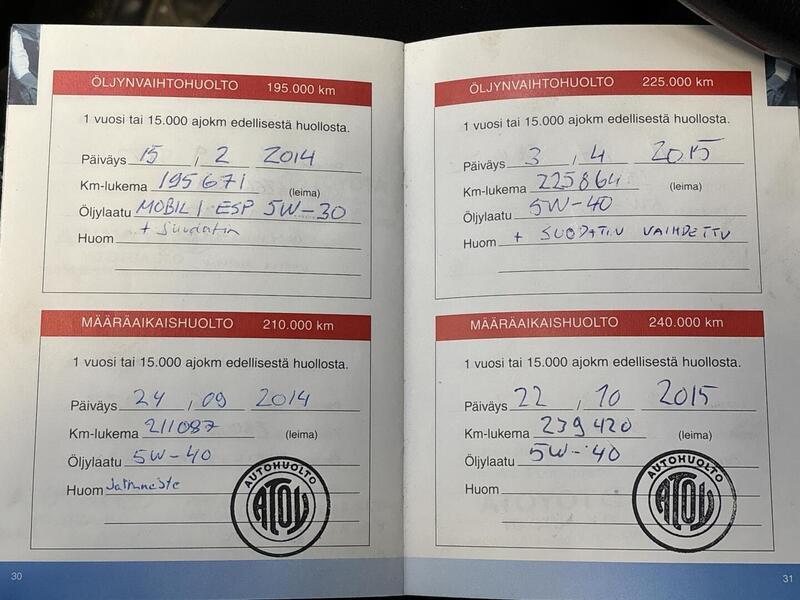 ÖLJYNVAIHTOHUOLTO 195.000 km
1 vuosi tai 15.000 ajokm edellisestä huollosta.
Päiväys 15 , 2 2014
Km-lukema 195671 (leima)
Öljylaatu MOBIL 1 ESP 5W-30
+ Suodatin
Huom
MÄÄRÄAIKAISHUOLTO 210.000 km
1 vuosi tai 15.000 ajokm edellisestä huollosta.
Päiväys 24 , 09 2014
Km-lukema 211087 (leima)
Öljylaatu 5W-40
Huom Jarruneste
AUTOHUOLTO
ATOY
30
ÖLJYNVAIHTOHUOLTO 225.000 km
1 vuosi tai 15.000 ajokm edellisestä huollosta.
Päiväys 3 , 4 2015
Km-lukema 225864 (leima)
Öljylaatu 5W-40
Huom + SUODATIN VAIHDETTU
MÄÄRÄAIKAISHUOLTO 240.000 km
1 vuosi tai 15.000 ajokm edellisestä huollosta.
Päiväys 22 , 10 2015
Km-lukema 239420 (leima)
Öljylaatu 5W-40
Huom
AUTOHUOLTO
ATOY
31